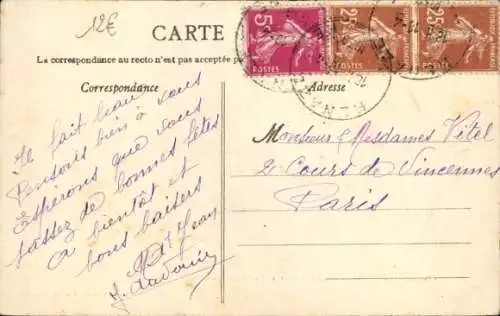 12€
CARTE
La correspondance au recto n'est pas acceptée pa
Correspondance
Adresse
5c
25c
25c
POSTES
POSTES
POSTES
Il fait beau
Pensons bien à vous
Espérons que vous
passez de bonnes fêtes
à bientôt et
bons baisers
Jean
Monsieur Mesdames Vitel
2 Cours de Vincennes
Paris